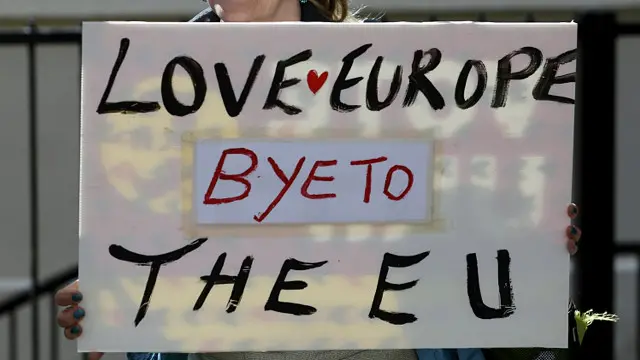 LOVE EUROPE
BYE TO
THE EU